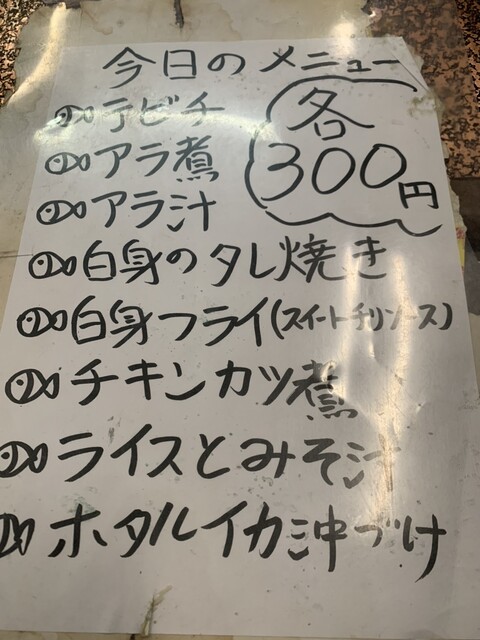 今日のメニュー
各
300円
テビチ
アラ煮
アラ汁
白身のタレ焼き
白身フライ(スイートチリソース)
チキンカツ煮
ライスとみそ汁
ホタルイカ沖づけ